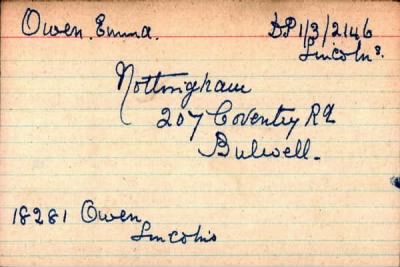 Owen. Emma. DP1/3/2146
Lincolns.
Nottingham
207 Coventry Rd
Bulwell.
18281 Owen
Lincolns